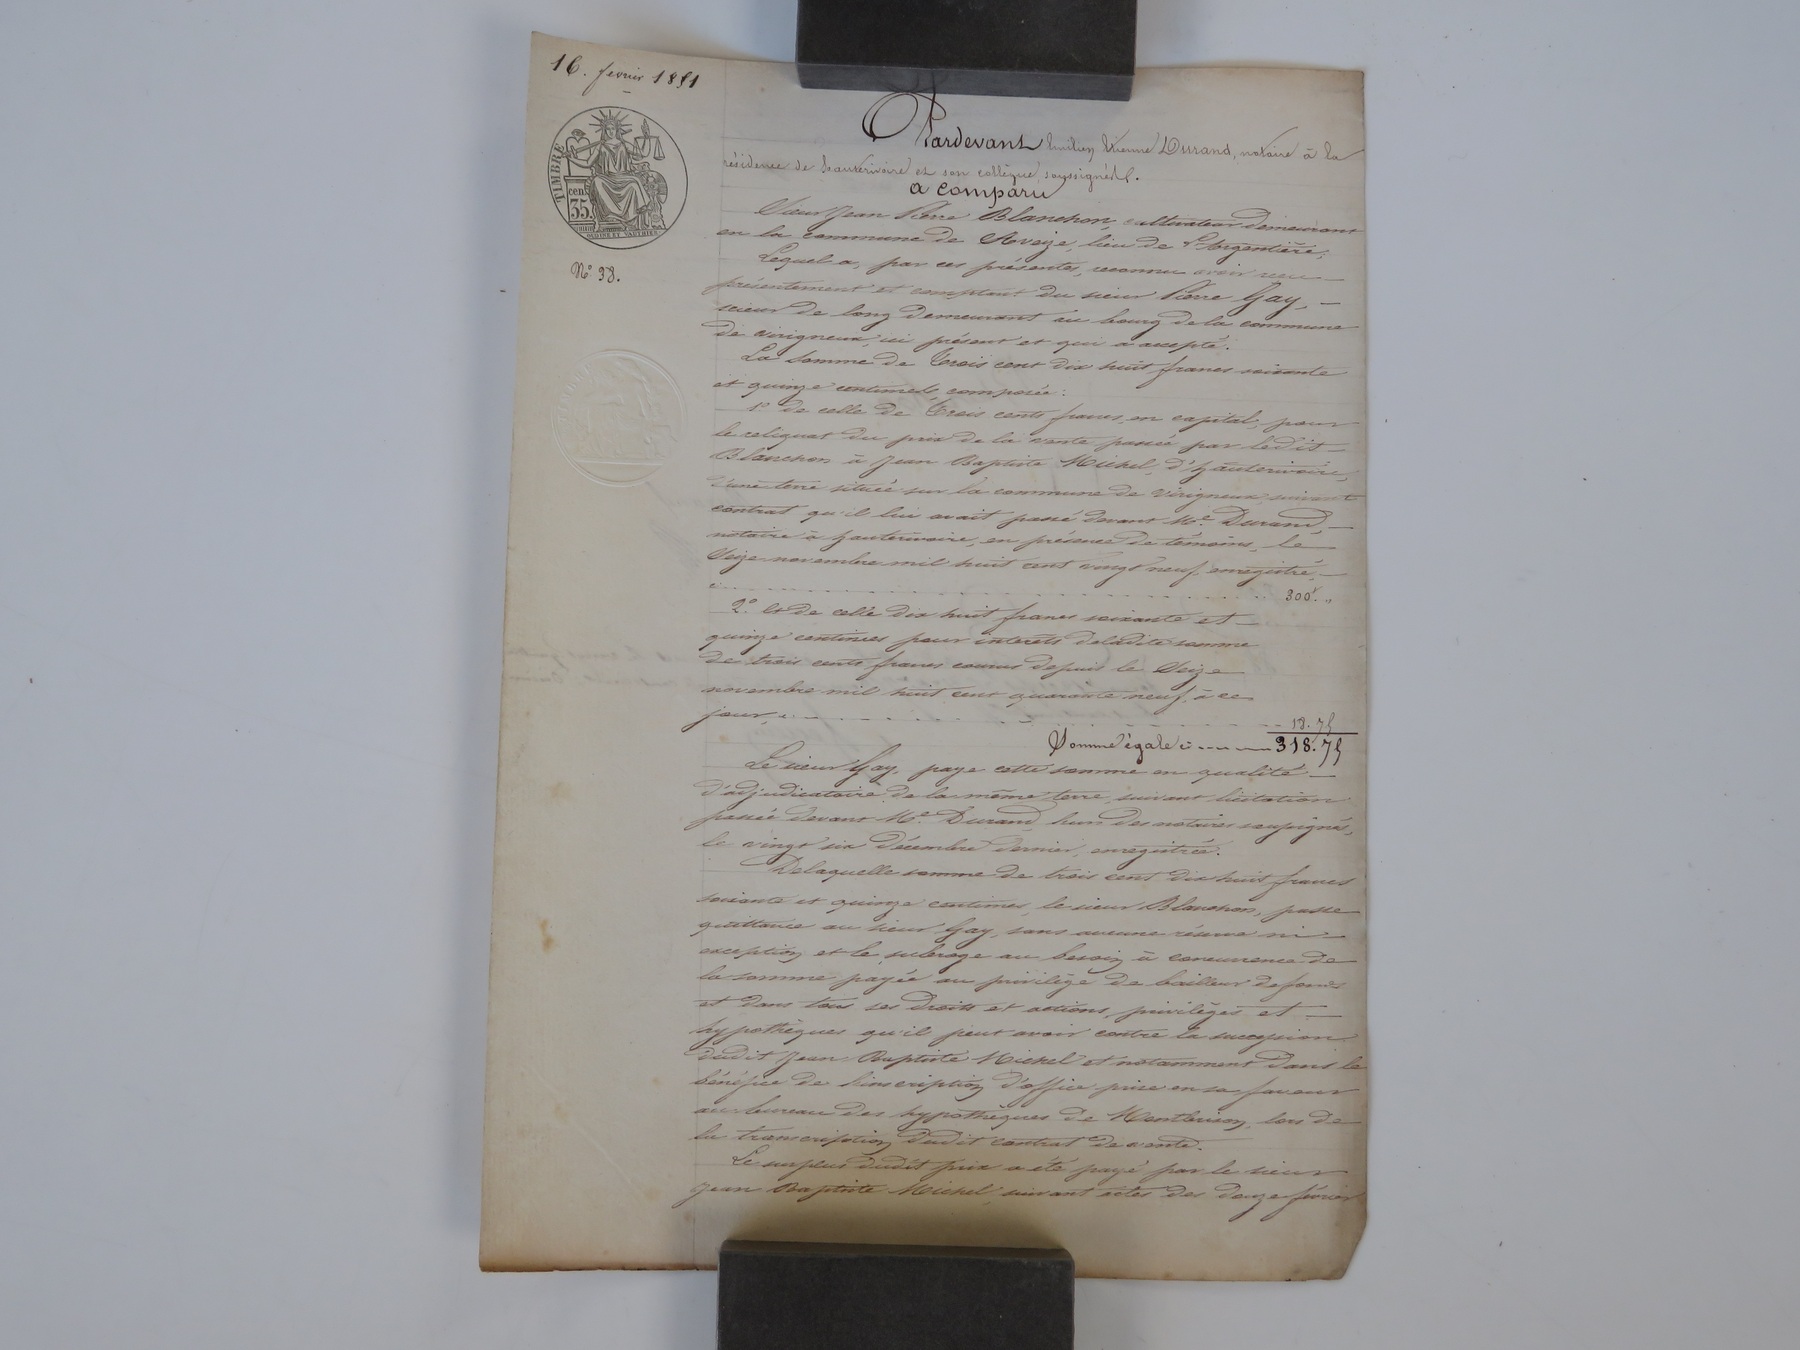 16. fevrier 1851
TIMBRE
cen.
35.
OUDINE ET VAUTHIER
N.° 38.
Pardevant Emilien Etienne Durand, notaire à la
résidence de hauterivoire et son collègue, soussignés.
a comparu
Sieur Jean Pierre Blanchon, cultivateur demeurant
en la commune de Aveize, lieu de L'Argentière;
Lequel a, par ces présentes, reconnu avoir reçu
présentement et comptant du sieur Pierre Gay,
scieur de long demeurant au bourg de la commune
de virigneux, ici présent et qui a accepté.
La somme de Trois cent dix huit francs soixante
et quinze centimes, composée:
1.° de celle de Trois cents francs en capital, pour
le reliquat du prix de la vente passée par ledit
Blanchon à Jean Baptiste Michel, d'hauterivoire,
d'une terre située sur la commune de Virigneux, suivant
contrat qu'il lui avait passé devant M.e Durand,
notaire à hauterivoire, en présence de témoins, le
Seize novembre mil huit cent vingt neuf, enregistré,
ci 300f. "
2.° Et de celle dix huit francs soixante et
quinze centimes pour intérêts de ladite somme
de trois cents francs courus depuis le Seize
novembre mil huit cent quarante neuf, à ce
jour, ci 18. 75
Somme égale ci 318. 75
Le sieur Gay, paye cette somme en qualité
d'adjudicataire de la même terre, suivant licitation
passée devant M.e Durand, l'un des notaires soussignés,
le vingt six Décembre dernier, enregistrée.
De laquelle somme de trois cent dix huit francs
soixante et quinze centimes, le sieur Blanchon, passe
quittance au sieur Gay, sans aucune réserve ni
exception et le subroge au besoin à concurrence de
la somme payée au privilège de bailleur de fonds
et dans tous ses droits et actions, privilèges et
hypothèques qu'il peut avoir contre la succession
dudit Jean Baptiste Michel et notamment dans le
bénéfice de l'inscription d'office prise en sa faveur
au bureau des hypothèques de Montbrison, lors de
la transcription dudit contrat de vente.
Le surplus dudit prix a été payé par le sieur
Jean Baptiste Michel, suivant actes des douze février